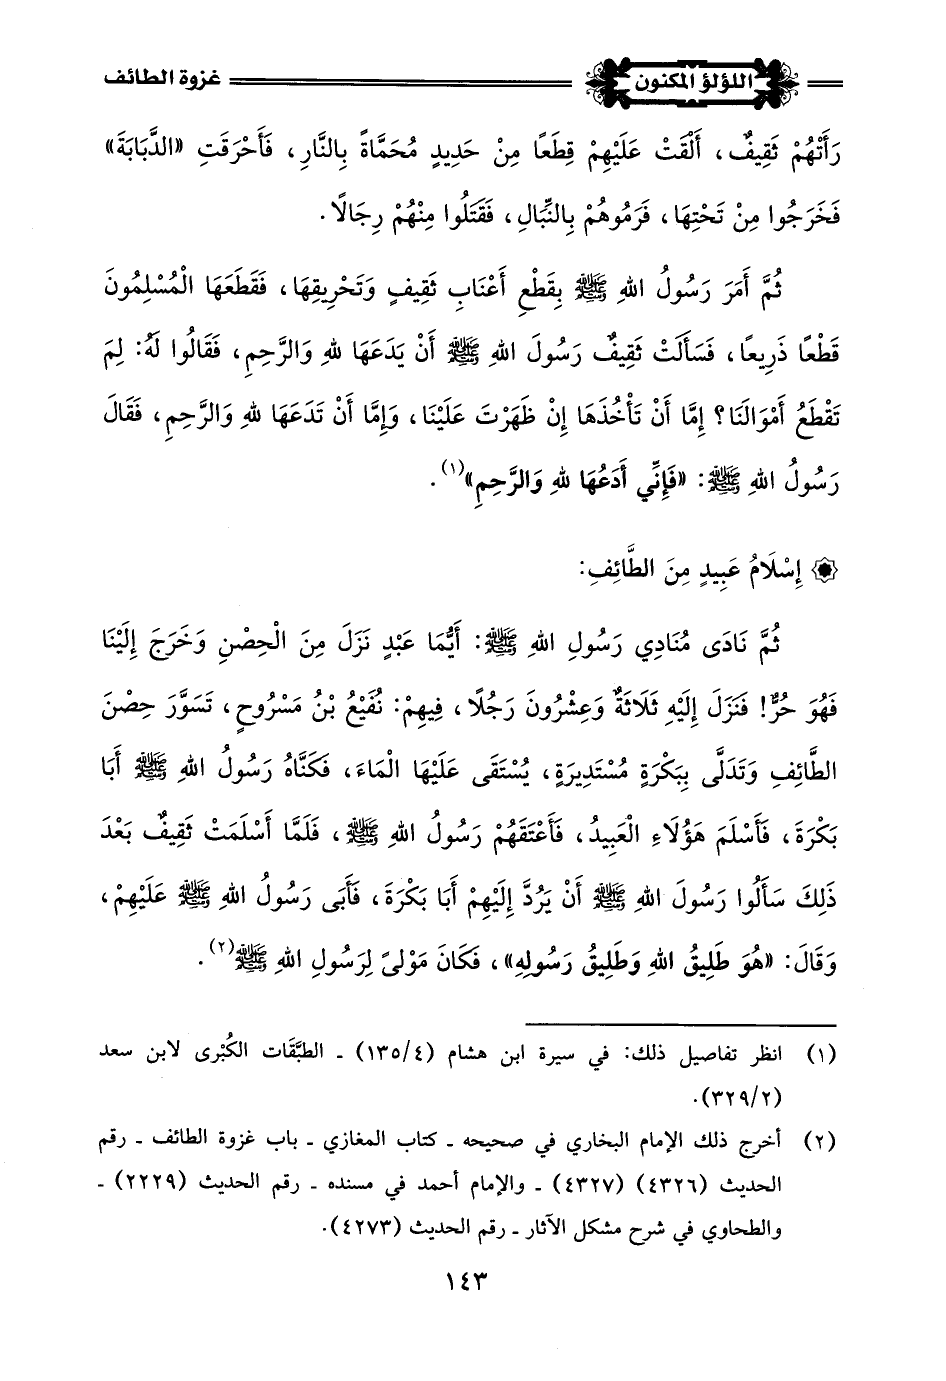 اللؤلؤ المكنون غزوة الطائف
رَأَتْهُمْ ثَقِيفٌ، أَلْقَتْ عَلَيْهِمْ قِطَعًا مِنْ حَدِيدٍ مُحَمَّاةً بِالنَّارِ، فَأَحْرَقَتِ «الدَّبَابَةَ»
فَخَرَجُوا مِنْ تَحْتِهَا، فَرَمُوهُمْ بِالنِّبَالِ، فَقَتَلُوا مِنْهُمْ رِجَالًا.
ثُمَّ أَمَرَ رَسُولُ اللهِ ﷺ بِقَطْعِ أَعْنَابِ ثَقِيفٍ وَتَحْرِيقِهَا، فَقَطَعَهَا الْمُسْلِمُونَ
قَطْعًا ذَرِيعًا، فَسَأَلَتْ ثَقِيفٌ رَسُولَ اللهِ ﷺ أَنْ يَدَعَهَا للهِ وَالرَّحِمِ، فَقَالُوا لَهُ: لِمَ
تَقْطَعُ أَمْوَالَنَا؟ إِمَّا أَنْ تَأْخُذَهَا إِنْ ظَهَرْتَ عَلَيْنَا، وَإِمَّا أَنْ تَدَعَهَا للهِ وَالرَّحِمِ، فَقَالَ
رَسُولُ اللهِ ﷺ: «فَإِنِّي أَدَعُهَا للهِ وَالرَّحِمِ»(١).
إِسْلَامُ عَبِيدٍ مِنَ الطَّائِفِ:
ثُمَّ نَادَى مُنَادِي رَسُولِ اللهِ ﷺ: أَيُّمَا عَبْدٍ نَزَلَ مِنَ الْحِصْنِ وَخَرَجَ إِلَيْنَا
فَهُوَ حُرٌّ! فَنَزَلَ إِلَيْهِ ثَلَاثَةٌ وَعِشْرُونَ رَجُلًا، فِيهِمْ: نُفَيْعُ بْنُ مَسْرُوحٍ، تَسَوَّرَ حِصْنَ
الطَّائِفِ وَتَدَلَّى بِبَكْرَةٍ مُسْتَدِيرَةٍ، يُسْتَقَى عَلَيْهَا الْمَاءَ، فَكَنَّاهُ رَسُولُ اللهِ ﷺ أَبَا
بَكْرَةَ، فَأَسْلَمَ هَؤُلَاءِ الْعَبِيدُ، فَأَعْتَقَهُمْ رَسُولُ اللهِ ﷺ، فَلَمَّا أَسْلَمَتْ ثَقِيفٌ بَعْدَ
ذَلِكَ سَأَلُوا رَسُولَ اللهِ ﷺ أَنْ يَرُدَّ إِلَيْهِمْ أَبَا بَكْرَةَ، فَأَبَى رَسُولُ اللهِ ﷺ عَلَيْهِمْ،
وَقَالَ: «هُوَ طَلِيقُ اللهِ وَطَلِيقُ رَسُولِهِ»، فَكَانَ مَوْلىً لِرَسُولِ اللهِ ﷺ(٢).
(١) انظر تفاصيل ذلك: في سيرة ابن هشام (١٣٥/٤) ـ الطبَّقَات الكُبْرى لابن سعد
(٣٢٩/٢).
(٢) أخرج ذلك الإمام البخاري في صحيحه ـ كتاب المغازي ـ باب غزوة الطائف ـ رقم
الحديث (٤٣٢٦) (٤٣٢٧) ـ والإمام أحمد في مسنده ـ رقم الحديث (٢٢٢٩) ـ
والطحاوي في شرح مشكل الآثار ـ رقم الحديث (٤٢٧٣).
١٤٣